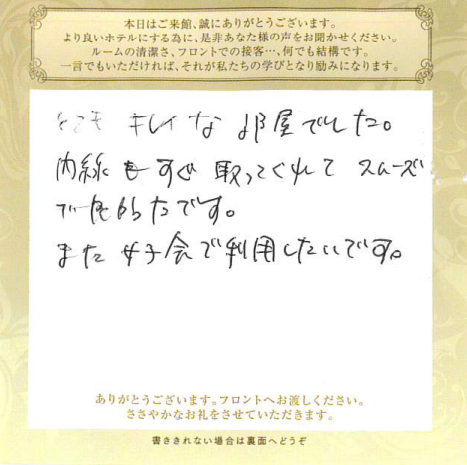 本日はご来館、誠にありがとうございます。
より良いホテルにする為に、是非あなた様の声をお聞かせください。
ルームの清潔さ、フロントでの接客…、何でも結構です。
一言でもいただければ、それが私たちの学びとなり励みになります。
とてもキレイな部屋でした。
内線もすぐ取ってくれてスムーズ
で良かったです。
また女子会で利用したいです。
ありがとうございます。フロントへお渡しください。
ささやかなお礼をさせていただきます。
書ききれない場合は裏面へどうぞ